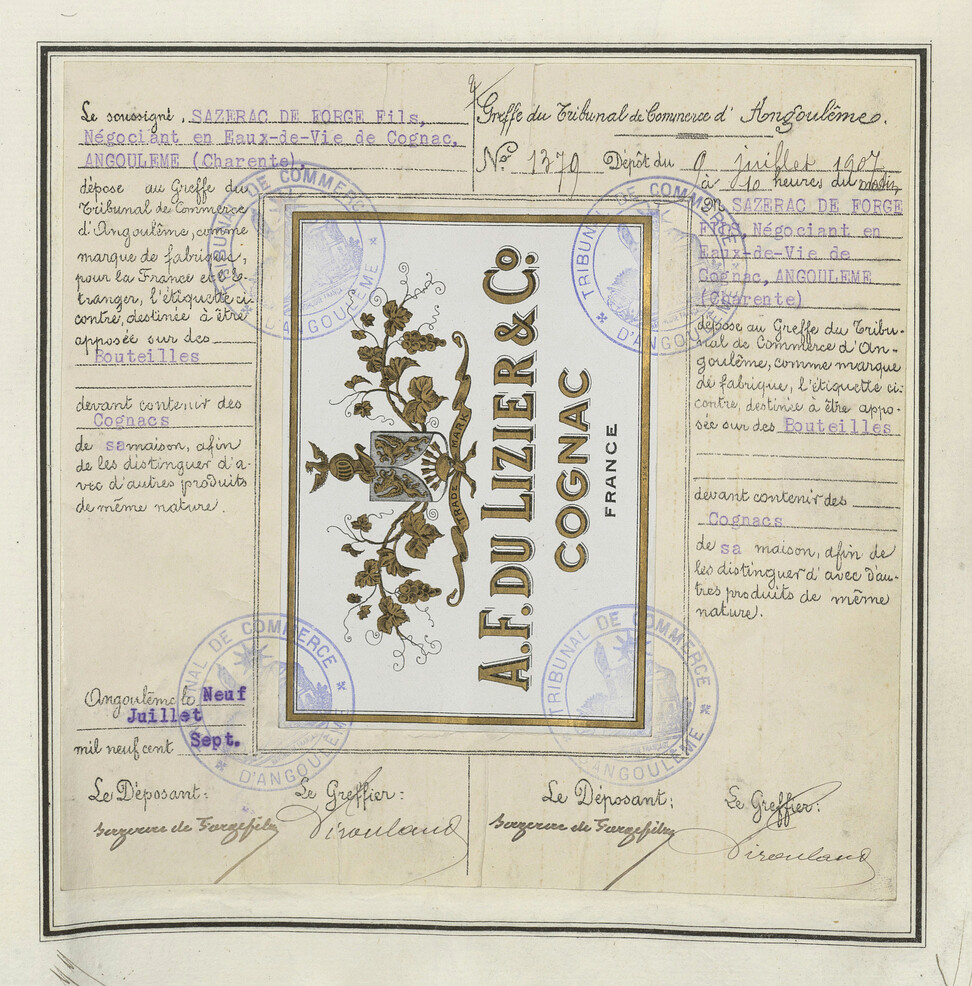 Le soussigné, SAZERAC DE FORGE Fils,
Négociant en Eaux-de-Vie de Cognac,
ANGOULEME (Charente),
dépose au Greffe du
Tribunal de Commerce
d'Angoulême, comme
marque de fabrique,
pour la France et l'é-
tranger, l'étiquette ci
contre, destinée à être
apposée sur des
Bouteilles
devant contenir des
Cognacs
de sa maison, afin
de les distinguer d'a-
vec d'autres produits
de même nature.
Angoulême le Neuf
Juillet
mil neuf cent Sept.
Le Déposant:
Sazerac de Forge fils
Le Greffier:
A. F. DU LIZIER & Co.
COGNAC
FRANCE
TRADE MARK
Greffe du Tribunal de Commerce d'Angoulême.
No. 1379 Dépôt du 9 juillet 1907
à 10 heures du matin,
M SAZERAC DE FORGE
FILS, Négociant en
Eaux-de-Vie de
Cognac, ANGOULEME
(Charente)
dépose au Greffe du Tribu-
nal de Commerce d'An-
goulême, comme marque
de fabrique, l'étiquette ci-
contre, destinée à être appo-
sée sur des Bouteilles
devant contenir des
Cognacs
de sa maison, afin de
les distinguer d'avec d'au-
tres produits de même
nature.
Le Déposant:
Sazerac de Forge fils
Le Greffier:
TRIBUNAL DE COMMERCE D'ANGOULEME
TRIBUNAL DE COMMERCE D'ANGOULEME
TRIBUNAL DE COMMERCE D'ANGOULEME
TRIBUNAL DE COMMERCE D'ANGOULEME